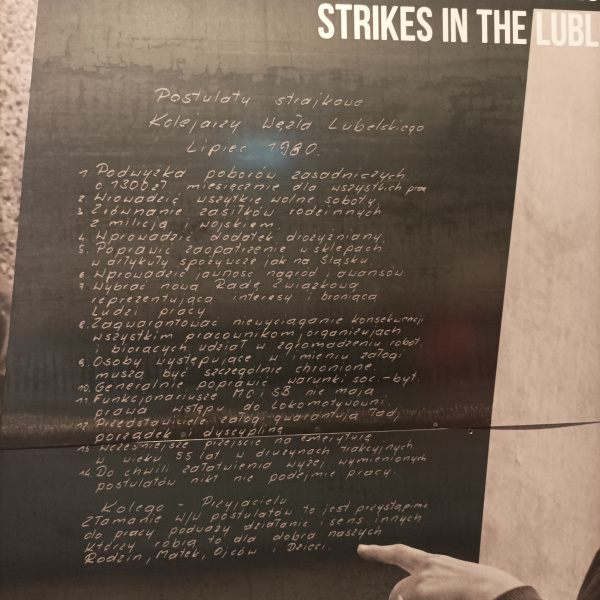 STRIKES IN THE LUBL
Postulaty strajkowe
Kolejarzy Węzła Lubelskiego
Lipiec 1980.
1. Podwyżka poborów zasadniczych
o 1300 zł miesięcznie dla wszystkich
2. Wrowadzić wszystkie wolne soboty.
3. Zrównanie zasiłków rodzinnych
z milicją i wojskiem.
4. Wprowadzić dodatek drożyźniany.
5. Poprawić zaopatrzenie w sklepach
w artykuły spożywcze jak na Śląsku.
6. Wprowadzić jawność nagród i awansów.
7. Wybrać nową Radę Związkową
reprezentującą interesy i broniącą
ludzi pracy
8. Zagwarantować niewyciąganie konsekwencji
wszystkim pracownikom organizujących
i biorących udział w zgromadzeniu robot.
9. Osoby występujące w imieniu załogi
muszą być szczególnie chronione.
10. Generalnie poprawić warunki soc.-byt.
11. Funkcjonariusze MO i SB nie mają
prawa wstępu do lokomotywowni.
12. Przedstawiciele załogi gwarantują ład,
porządek i dyscyplinę
13. Wcześniejsze przejście na emeryturę
w wieku 55 lat w drużynach trakcyjnych
14. Do chwili załatwienia wyżej wymienionych
postulatów nikt nie podejmie pracy.
Kolego - Przyjacielu
Złamanie w/w postulatów to jest przystąpienie
do pracy podważy działanie i sens innych
którzy robią to dla dobra naszych
Rodzin, Matek, Ojców i Dzieci.